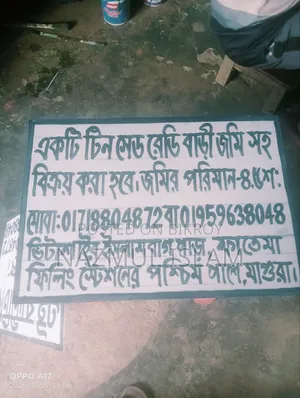 একটি টিন সেড রেডি বাড়ী জমি সহ
বিক্রয় করা হবে। জমির পরিমান-৪.৬৫শ:
মোবা:01718804872 বা 01959638048
POSTED ON BIKROY
ইসলামবাগ পাড়া, ফাতেমা
NAZMUL ISLAM
ফিলিং স্টেশনের পশ্চিম পাশে, মাগুরা।
OPPO A17